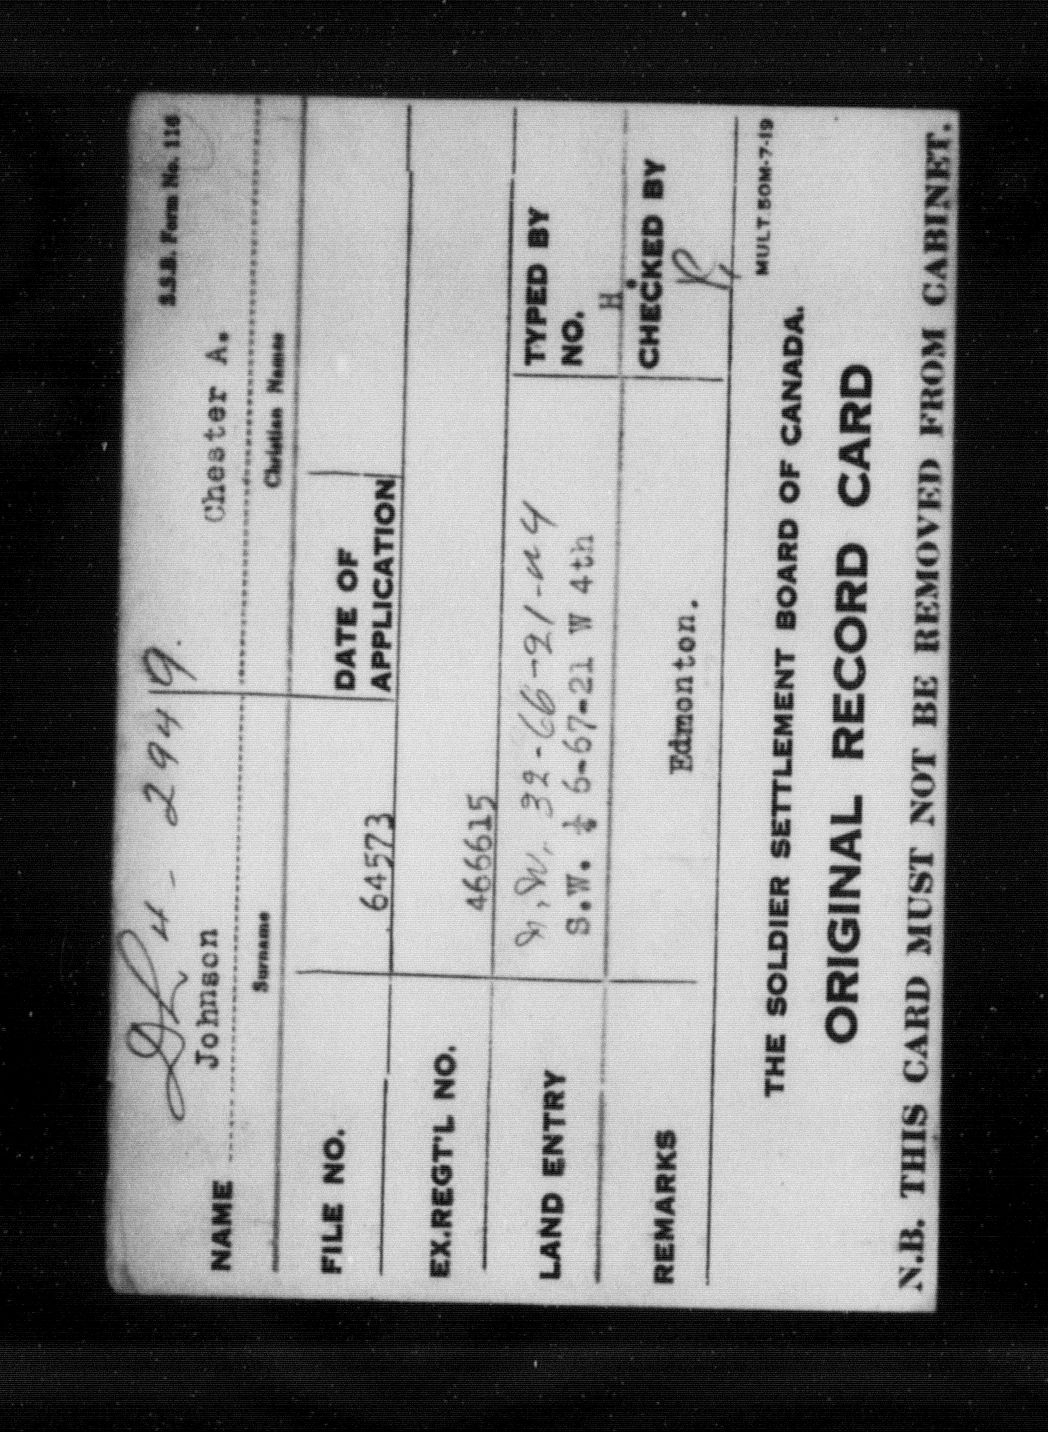 S.S.B. Form No. 116
SL 4 - 2949.
NAME Johnson Chester A.
Surname Christian Names
FILE NO. 64573 DATE OF
APPLICATION
EX.REGT'L NO. 466615
LAND ENTRY N.W. 32-66-21-W4 TYPED BY
S.W. ¼ 6-67-21 W 4th NO. H.
REMARKS Edmonton. CHECKED BY
MULT 50M-7-19
THE SOLDIER SETTLEMENT BOARD OF CANADA.
ORIGINAL RECORD CARD
N.B. THIS CARD MUST NOT BE REMOVED FROM CABINET.